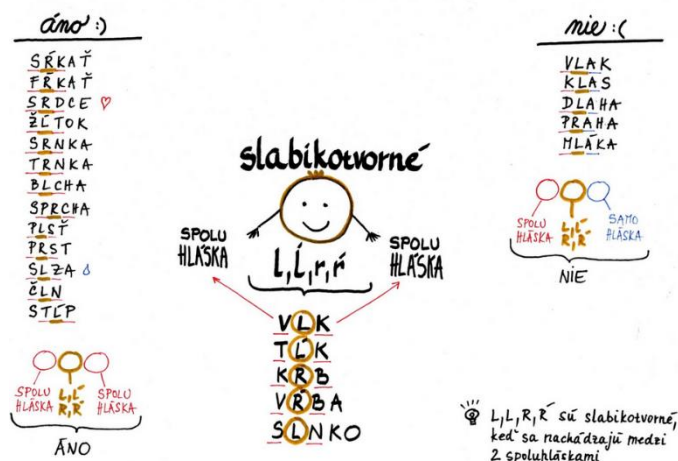 áno :)
SŔKAŤ
FŔKAŤ
SRDCE
ŽĹTOK
SRNKA
TRNKA
BLCHA
SPRCHA
PLSŤ
PRST
SLZA
ČLN
STĹP
SPOLU
HLÁSKA
L,Ĺ
R,Ŕ
SPOLU
HLÁSKA
ÁNO
slabikotvorné
SPOLU
HLÁSKA
l, ĺ, r, ŕ
SPOLU
HLÁSKA
VLK
TĹK
KRB
VŔBA
SLNKO
nie :(
VLAK
KLAS
DLAHA
PRAHA
MLÁKA
SPOLU
HLÁSKA
L,Ĺ
R,Ŕ
SAMO
HLÁSKA
NIE
L,Ĺ,R,Ŕ sú slabikotvorné,
keď sa nachádzajú medzi
2 spoluhláskami